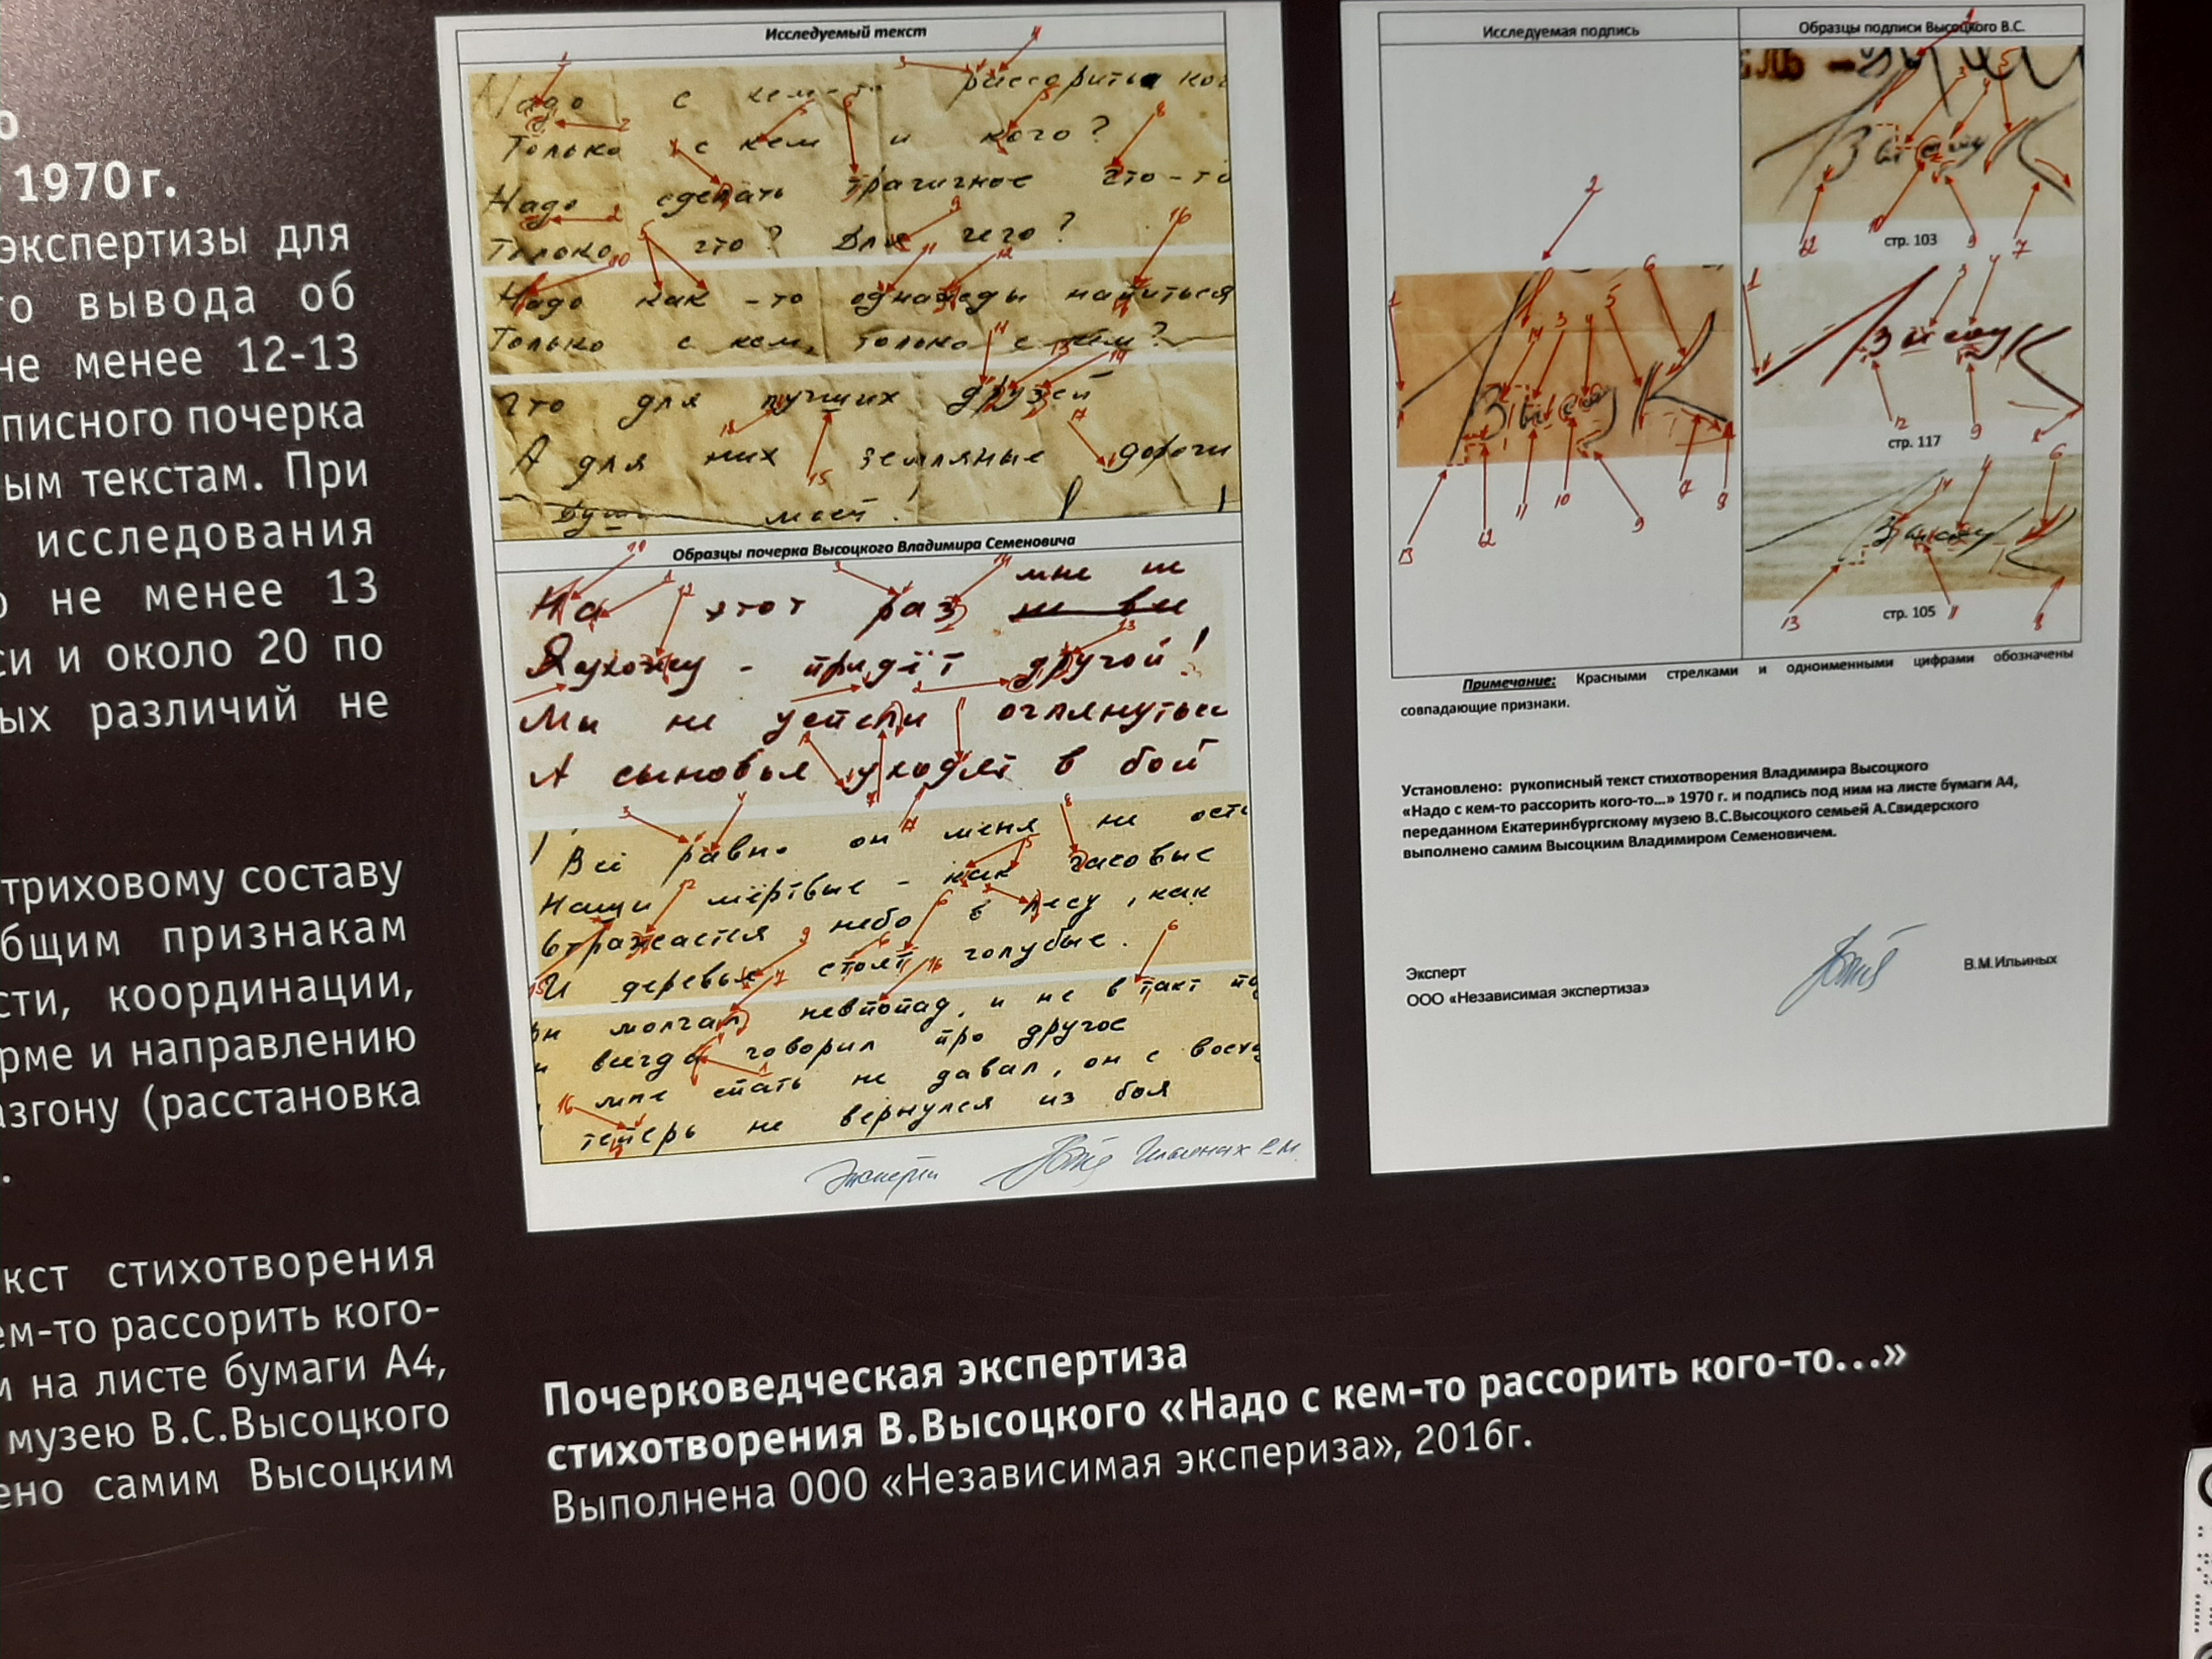 о
1970 г.
экспертизы для
го вывода об
не менее 12-13
писного почерка
ым текстам. При
исследования
о не менее 13
си и около 20 по
ых различий не
триховому составу
бщим признакам
сти, координации,
рме и направлению
азгону (расстановка
.
кст стихотворения
ем-то рассорить кого-
м на листе бумаги А4,
музею В.С.Высоцкого
ено самим Высоцким
Исследуемый текст
Надо с кем-то рассорить ког
Только с кем и кого?
Надо сделать трагичное что-то
Только что? Для чего?
Надо как-то однажды напиться
Только с кем, только с кем?
Что для лучших друзей
А для них земляные дороги
мост!
Образцы почерка Высоцкого Владимира Семеновича
мне не
На этот раз не вы
Я ухожу - придёт другой!
Мы не успели оглянуться
А сыновья уходят в бой
Всё равно он меня не оста
Наши мёртвые - как часовые
Отражается небо в лесу, как
И деревья стоят голубые.
он молчал невпопад, и не в такт по
и всегда говорил про другое
мне спать не давал, он с восхо
теперь не вернулся из боя
Эксперт Ильиных В.М.
Исследуемая подпись
Образцы подписи Высоцкого В.С.
Высоц
стр. 103
стр. 117
стр. 105
Примечание: Красными стрелками и одноименными цифрами обозначены
совпадающие признаки.
Установлено: рукописный текст стихотворения Владимира Высоцкого
«Надо с кем-то рассорить кого-то...» 1970 г. и подпись под ним на листе бумаги А4,
переданном Екатеринбургскому музею В.С.Высоцкого семьей А.Свидерского
выполнено самим Высоцким Владимиром Семеновичем.
Эксперт
ООО «Независимая экспертиза»
В.М.Ильиных
Почерковедческая экспертиза
стихотворения В.Высоцкого «Надо с кем-то рассорить кого-то...»
Выполнена ООО «Независимая экспериза», 2016г.